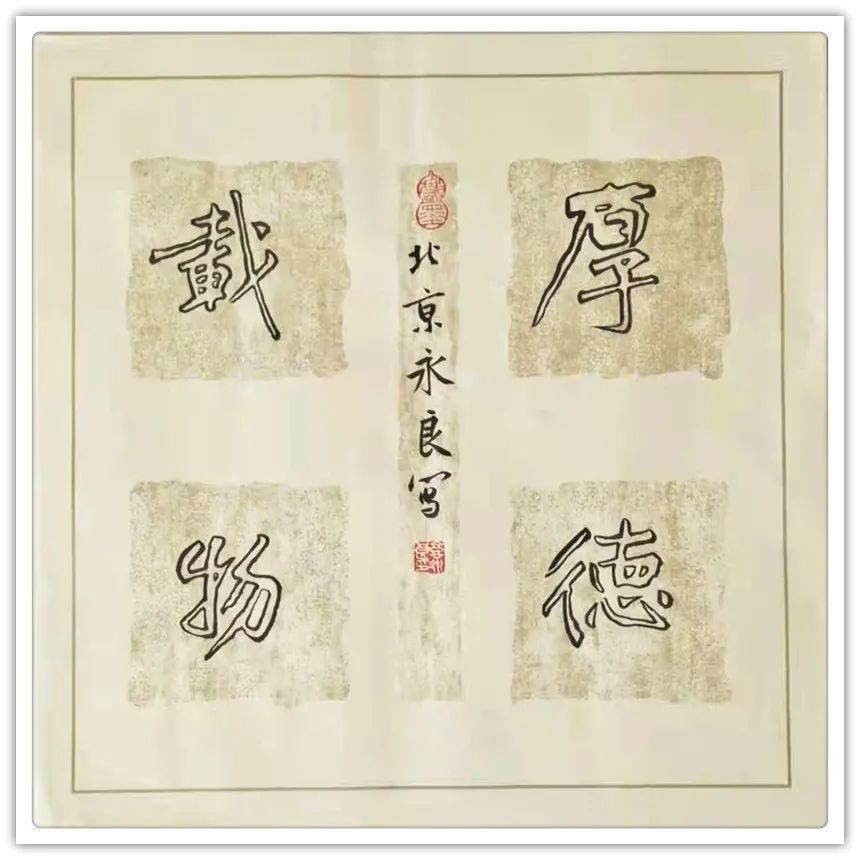 厚德
載物
北京永良写